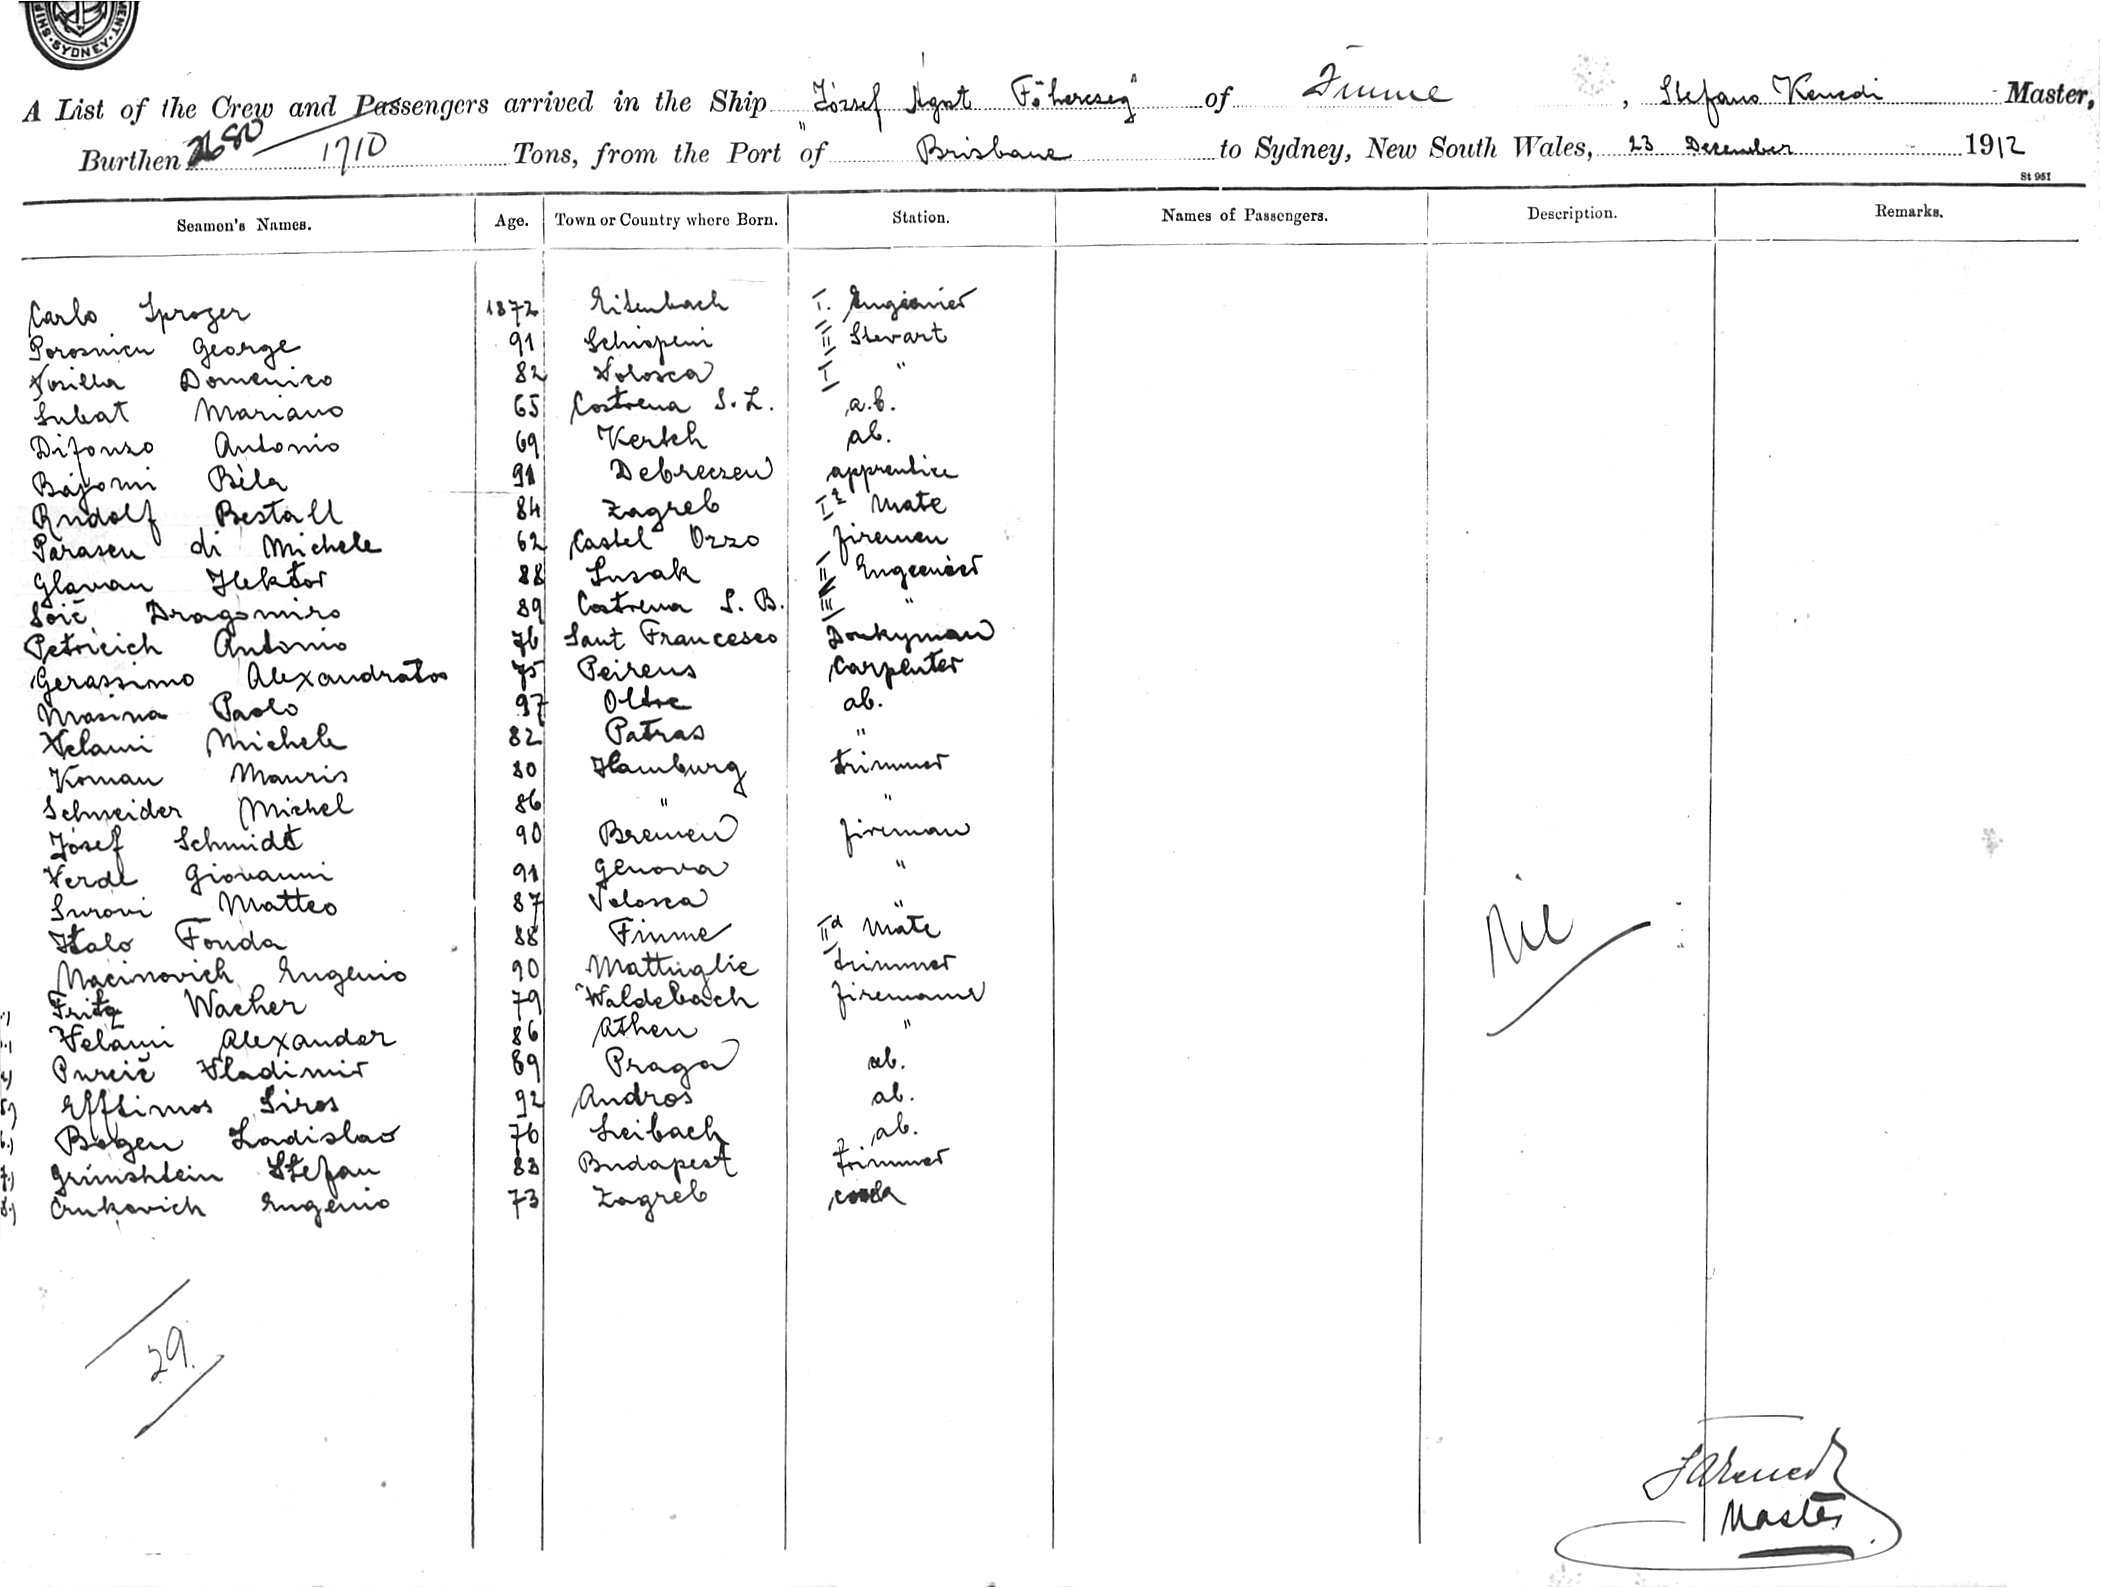 MENT · SHIP
· SYDNEY ·
A List of the Crew and Passengers arrived in the Ship "József Agost Főherceg" of Fiume, Stefano Kenedi Master,
Burthen 2680 1710 Tons, from the Port of Brisbane to Sydney, New South Wales, 23 December 1912
St 951
Seamen's Names. Age. Town or Country where Born. Station. Names of Passengers. Description. Remarks.
Carlo Sprozer 1872 Eisenbach I. Engienier
Porosnicu George 91 Schiopeni II Stevart
Vosilla Domenico 82 Volosca I "
Subat Mariano 65 Costrena S. L. a.b.
Difonzo Antonio 69 Kertch ab.
Bajomi Béla 91 Debreczen apprentice
Rudolf Bestall 84 Zagreb Mate
Parasen di Michele 62 Castel Ozzo firemen
Glavan Hektor 88 Susak II Engeenier
Soić Dragomiro 89 Costrena S. B. III "
Petricich Antonio 76 Sant Francesco Donkyman
Gerassimo Alexandratos 75 Peireus Carpenter
Masina Paolo 97 Oltre ab.
Velami Michele 82 Patras "
Koman Mauris 80 Hamburg trimmer
Schneider Michel 86 " "
József Schmidt 90 Bremen fireman
Verde Giovanni 91 Genova "
Surovi Matteo 87 Volosca "
Italo Fonda 88 Fiume IId Mate
Macinovich Eugenio 90 Mattuglie trimmer
Fritz Wacher 79 Waldebach firemane
Velami Alexander 86 Athen "
4) Purcić Vladimir 89 Praga ab.
5) Efftimos Siros 92 Andros ab.
6.) Bogen Ladislao 76 Leibach ab.
7.) Grünshtein Stefan 88 Budapest trimmer
8.) Crnkovich Eugenio 73 Zagreb
Nil
29.
Master